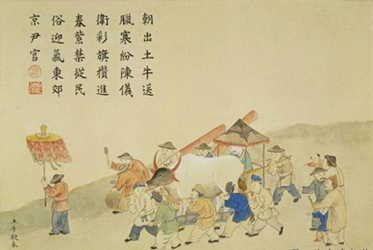 朝出土牛送
臘寒紛陳儀
衛彩旗攢進
春紫禁從民
俗迎氣東郊
京尹官